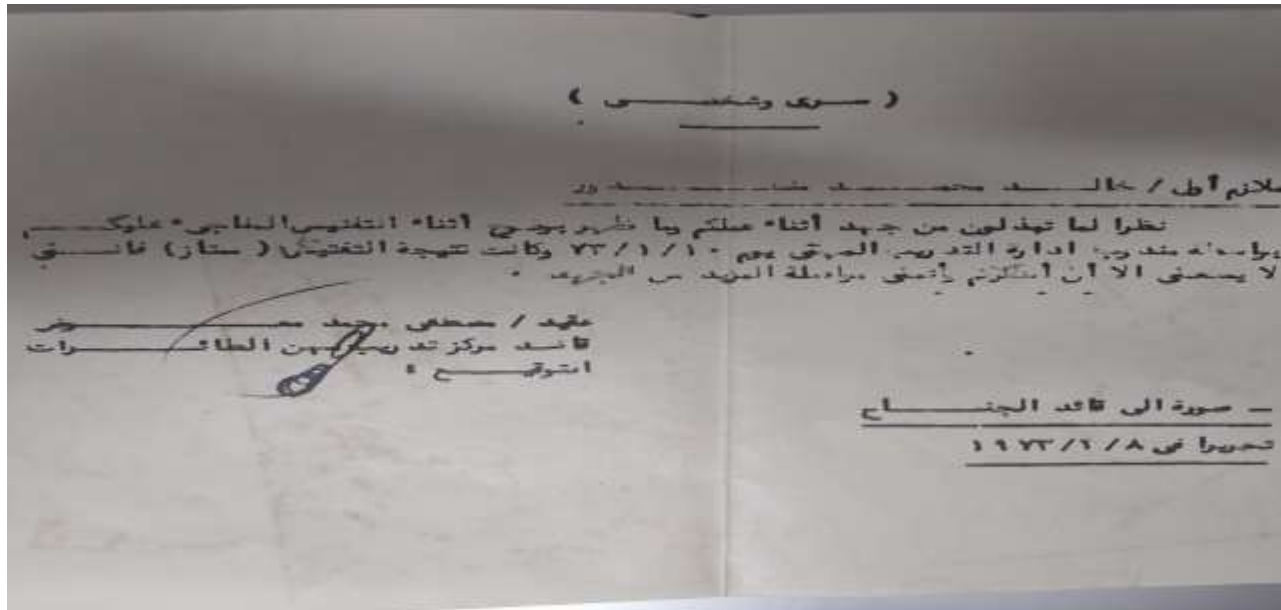 ( سرى وشخصى )
ملازم أول / خالد محمد
نظرا لما تبذلون من جهد أثناء عملكم وما ظهر بوضوح أثناء التفتيش المفاجىء عليكم
بواسطة مندوب ادارة التدريب المهنى يوم ٧٣/١/١٠ وكانت نتيجة التفتيش ( ممتاز ) فاننى
لا يسعنى الا أن أشكركم وأتمنى مواصلة المزيد من الجهد .
عقيد / مصطفى محمد
قائد مركز تدريب مهن الطائرات
التوقيع :
ـ صورة الى قائد الجناح
تحريرا فى